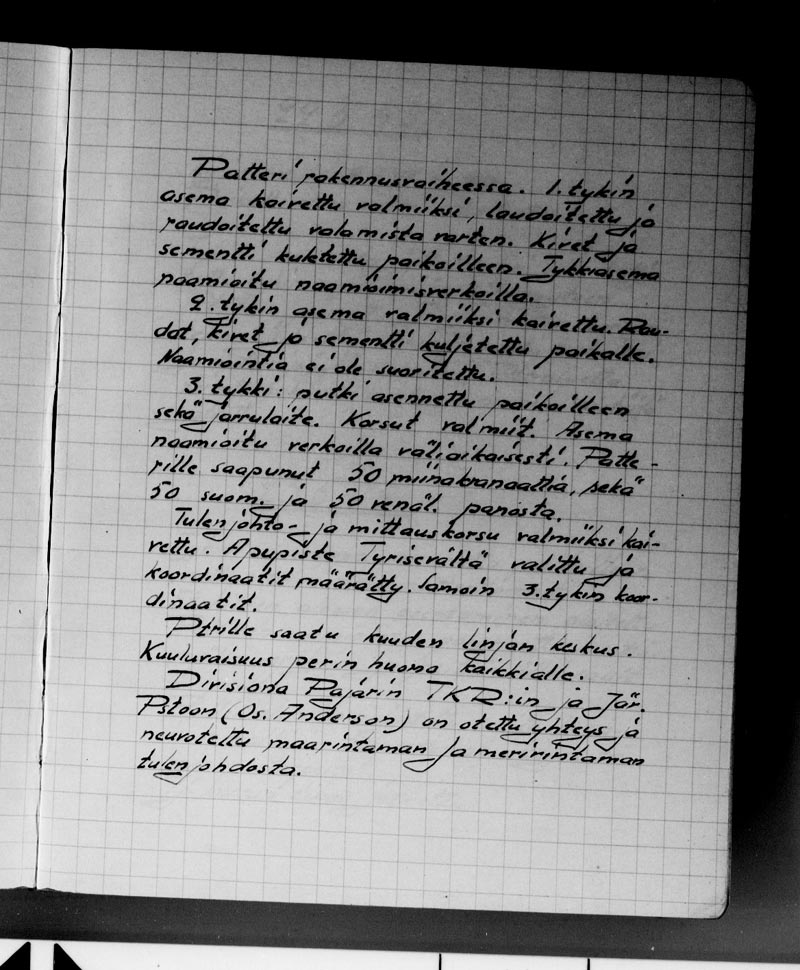 Patteri rakennusvaiheessa. 1. tykin
asema kaivettu valmiiksi, laudoitettu ja
raudoitettu valamista varten. Kivet ja
sementti kuletettu paikoilleen. Tykkiasema
naamioitu naamioimisverkoilla.
2. tykin asema valmiiksi kaivettu. Rau-
dat, kivet ja sementti kuljetettu paikalle.
Naamiointia ei ole suoritettu.
3. tykki: putki asennettu paikoilleen
sekä jarrulaite. Korsut valmiit. Asema
naamioitu verkoilla väliaikaisesti. Patte-
rille saapunut 50 miinakranaattia, sekä
50 suom. ja 50 venäl. panosta.
Tulenjohto- ja mittauskorsu valmiiksi kai-
vettu. Apupiste Tyrisevältä valittu ja
koordinaatit määrätty. Samoin 3. tykin koor-
dinaatit.
Ptrille saatu kuuden linjan keskus.
Kuuluvaisuus perin huono kaikkialle.
Divisiona Pajarin TKR:in ja Jär.
Pstoon (Os. Anderson) on otettu yhteys ja
neuvotettu maarintaman ja meririntaman
tulenjohdosta.